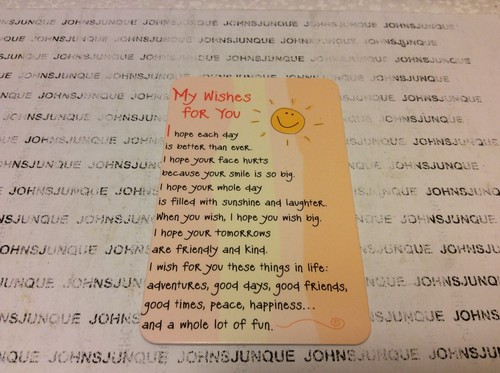 My Wishes
for You
I hope each day
is better than ever.
I hope your face hurts
because your smile is so big.
I hope your whole day
is filled with sunshine and laughter.
When you wish, I hope you wish big.
I hope your tomorrows
are friendly and kind.
I wish for you these things in life:
adventures, good days, good friends,
good times, peace, happiness...
and a whole lot of fun.
JOHNSJUNQUE